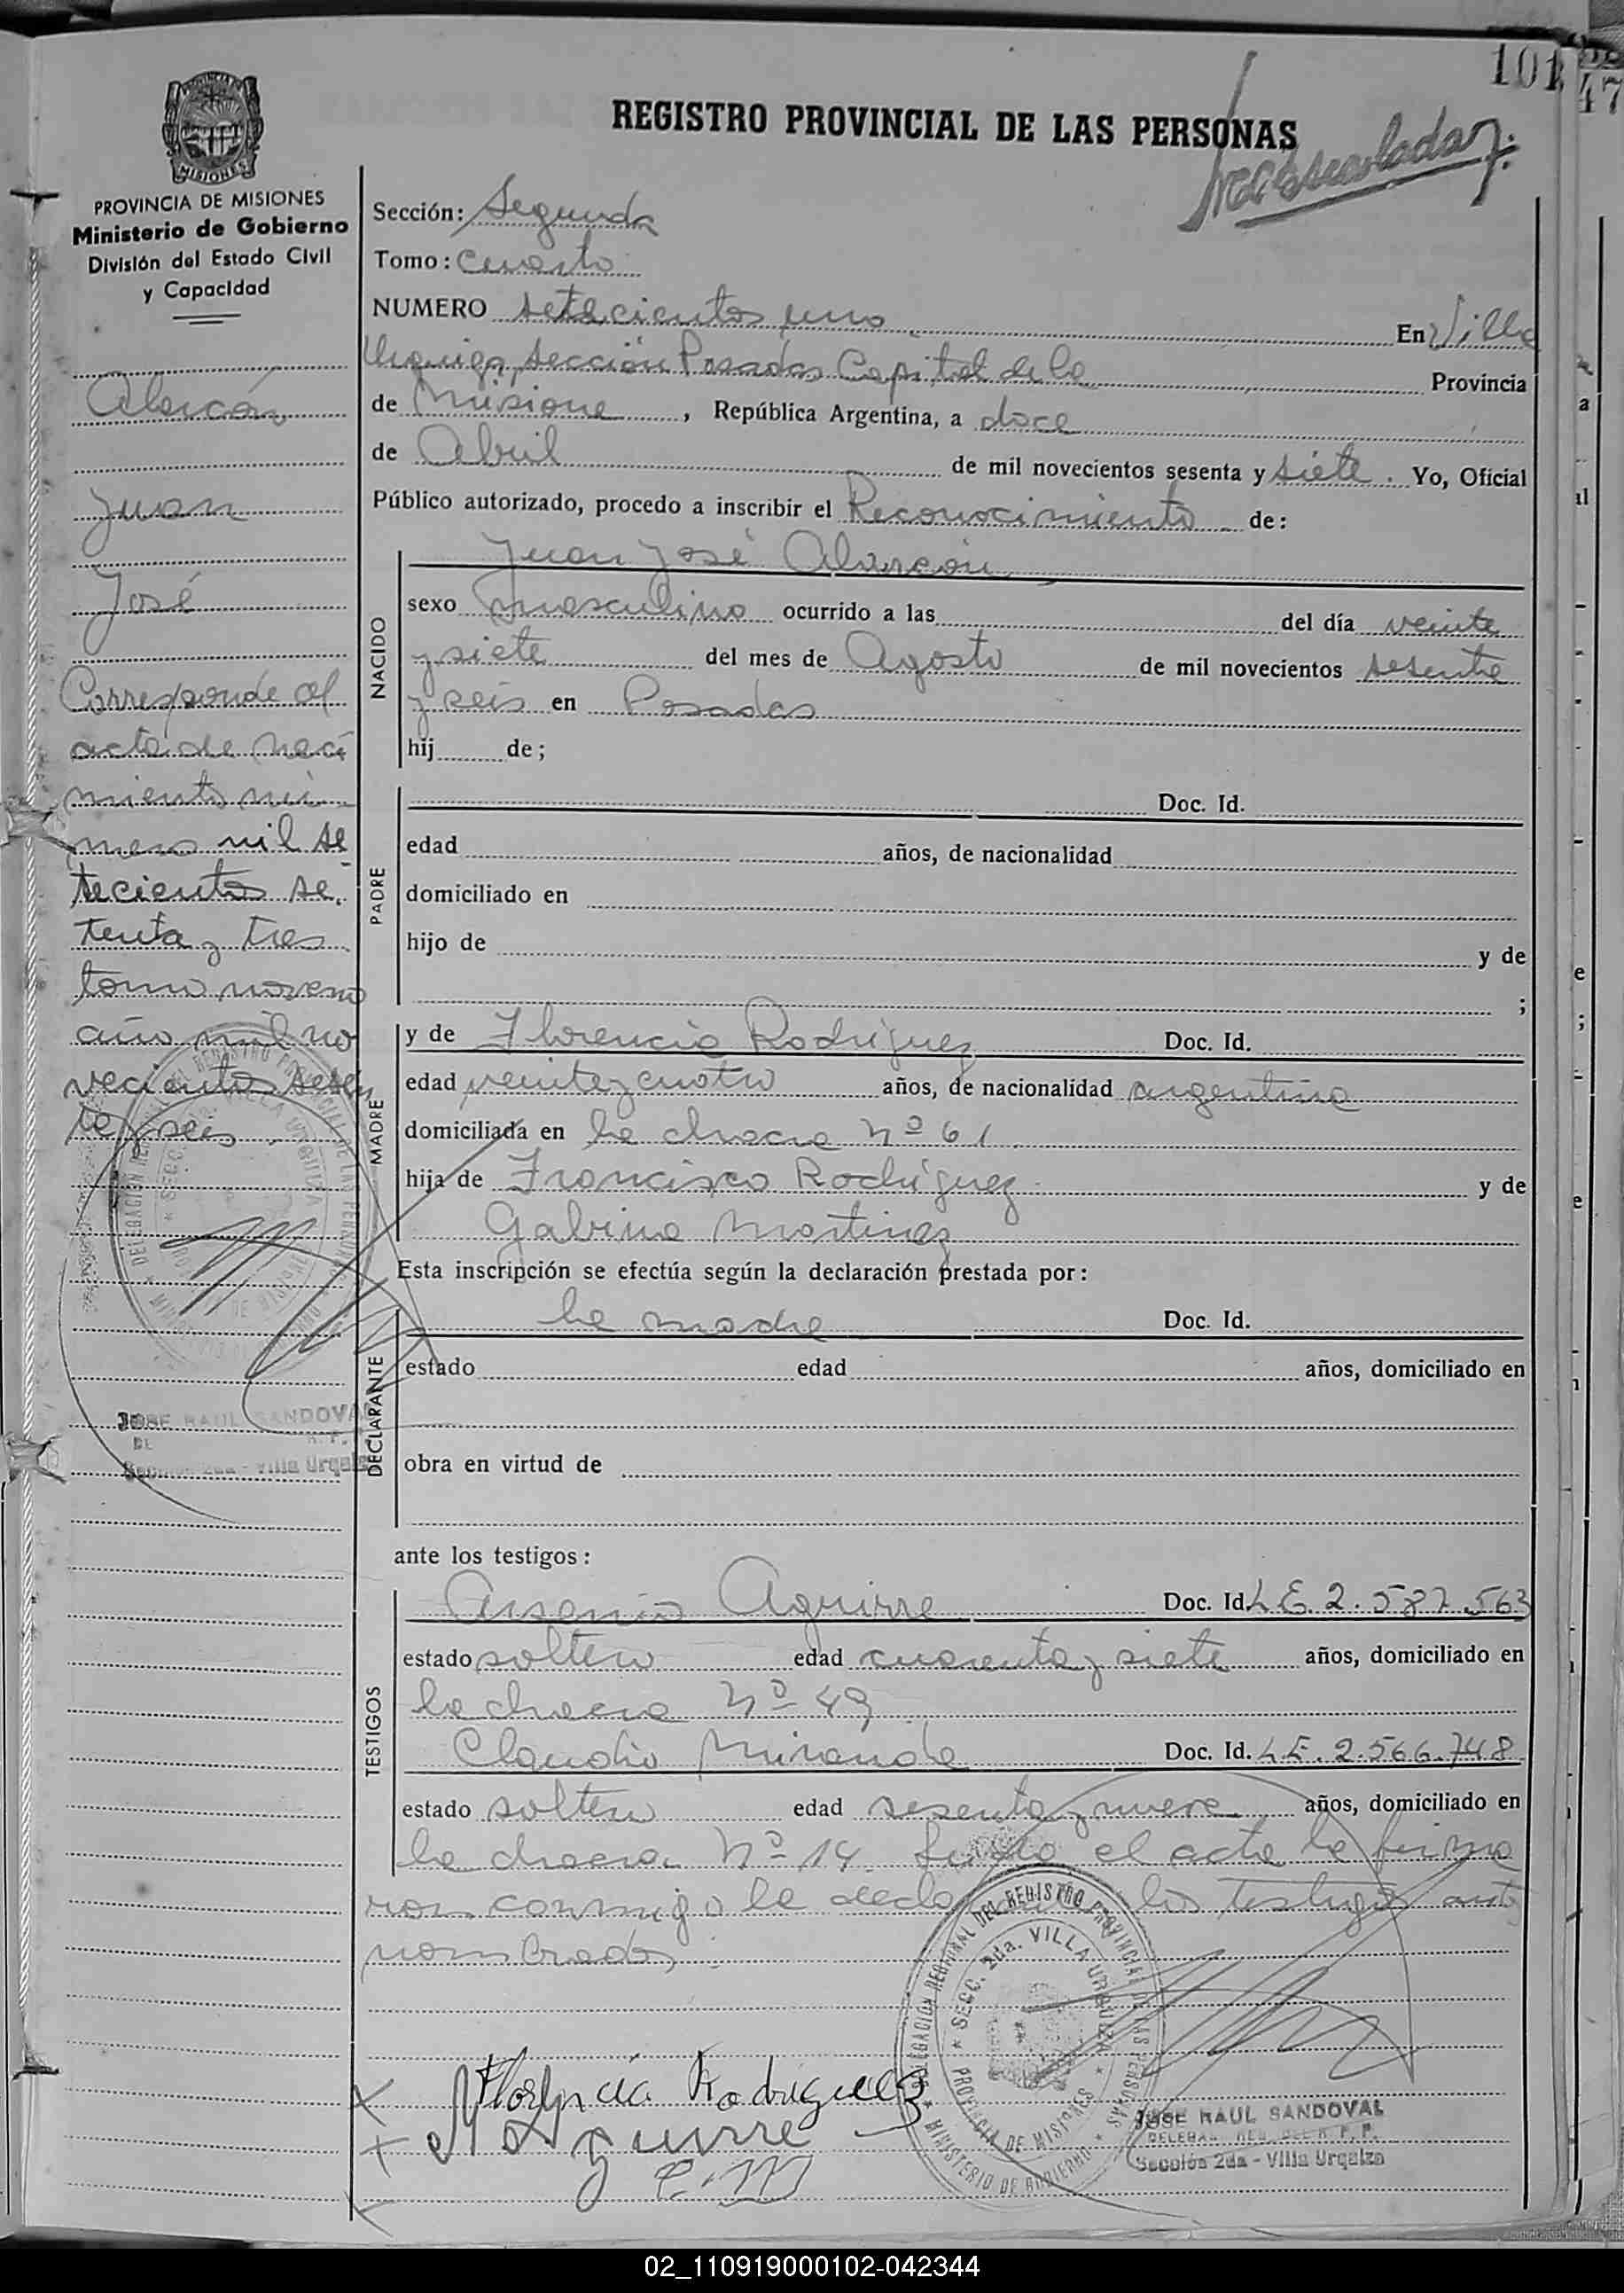 101
47
REGISTRO PROVINCIAL DE LAS PERSONAS
PROVINCIA DE MISIONES
Ministerio de Gobierno
División del Estado Civil
y Capacidad
Alarcón
Juan
José
Corresponde al
acta de naci
miento nú
mero mil se
tecientos se
tenta y tres
tomo noveno
año mil no
vecientos sesen
ta y seis.
JOSE RAUL SANDOVAL
Sección 2da - Villa Urquiza
Sección: Segunda
Tomo: Cuarto
NUMERO setecientos uno En Villa
Urquiza, Sección Posadas Capital de la Provincia
de Misione, República Argentina, a doce
de Abril de mil novecientos sesenta y siete. Yo, Oficial
Público autorizado, procedo a inscribir el Reconocimiento de:
NACIDO
Juan José Alarcón
sexo masculino ocurrido a las del día veinte
y siete del mes de Agosto de mil novecientos sesenta
y seis en Posadas
hij de;
PADRE
Doc. Id.
edad años, de nacionalidad
domiciliado en
hijo de y de
;
MADRE
y de Florencia Rodríguez Doc. Id.
edad veinte y cuatro años, de nacionalidad argentina
domiciliada en la chacra Nº 61
hija de Francisco Rodríguez y de
Gabina Martinez
Esta inscripción se efectúa según la declaración prestada por:
DECLARANTE
la madre Doc. Id.
estado edad años, domiciliado en
obra en virtud de
ante los testigos:
TESTIGOS
Arsenio Aguirre Doc. Id. L E. 2.587.563
estado soltero edad cuarenta y siete años, domiciliado en
la chacra Nº 49
Claudio Miranda Doc. Id. L E. 2.566.748
estado soltero edad sesenta y nueve años, domiciliado en
la chacra Nº 14. el acta la firma
ron conmigo la los testigos ante
nombrados
DELEGACION REGIONAL DEL REGISTRO PROVINCIAL DE LAS PERSONAS
SECC. 2da. VILLA URQUIZA
PROVINCIA DE MISIONES
MINISTERIO DE GOBIERNO
Florencia Rodriguez
Aguirre
C. M
JOSE RAUL SANDOVAL
Sección 2da - Villa Urquiza
02_110919000102-042344